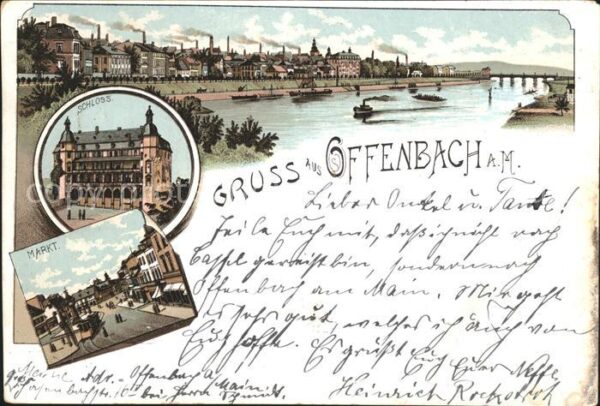 SCHLOSS.
GRUSS AUS OFFENBACH A.M.
MARKT.
Lieber Onkel u. Tante!
Teile Euch mit, daß ich nicht nach
Cassel gereist bin, sondern nach
Offenbach am Main. Mir geht
es sehr gut, welches ich auch von
Euch hoffe. Es grüßt Euch Euer Neffe
Heinrich
Meine Adr. Offenbach a/Main
bei Herrn Schmidt.